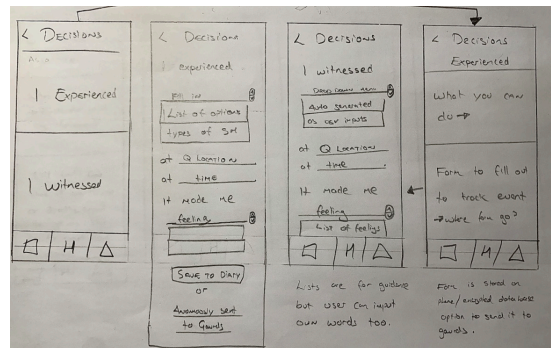 < DECISIONS
I Experienced
I witnessed
H
< DECISIONS
I experienced
Fill in
List of options
types of SH
at Q LOCATION
at time
It made me
feeling
SAVE TO DIARY
or
Anomously sent
to Gaurds
< DECISIONS
I witnessed
Drop Down menu
Auto generated
as user inputs
at Q LOCATION
at time
It made me
feeling
List of feelings
H
Lists are for guidance
but user can input
own words too.
< DECISIONS
Experienced
What you can
do →
Form to fill out
to track event
→ where form go?
H
Form is stored on
phone/encrypted database
option to send it to
gaurds.